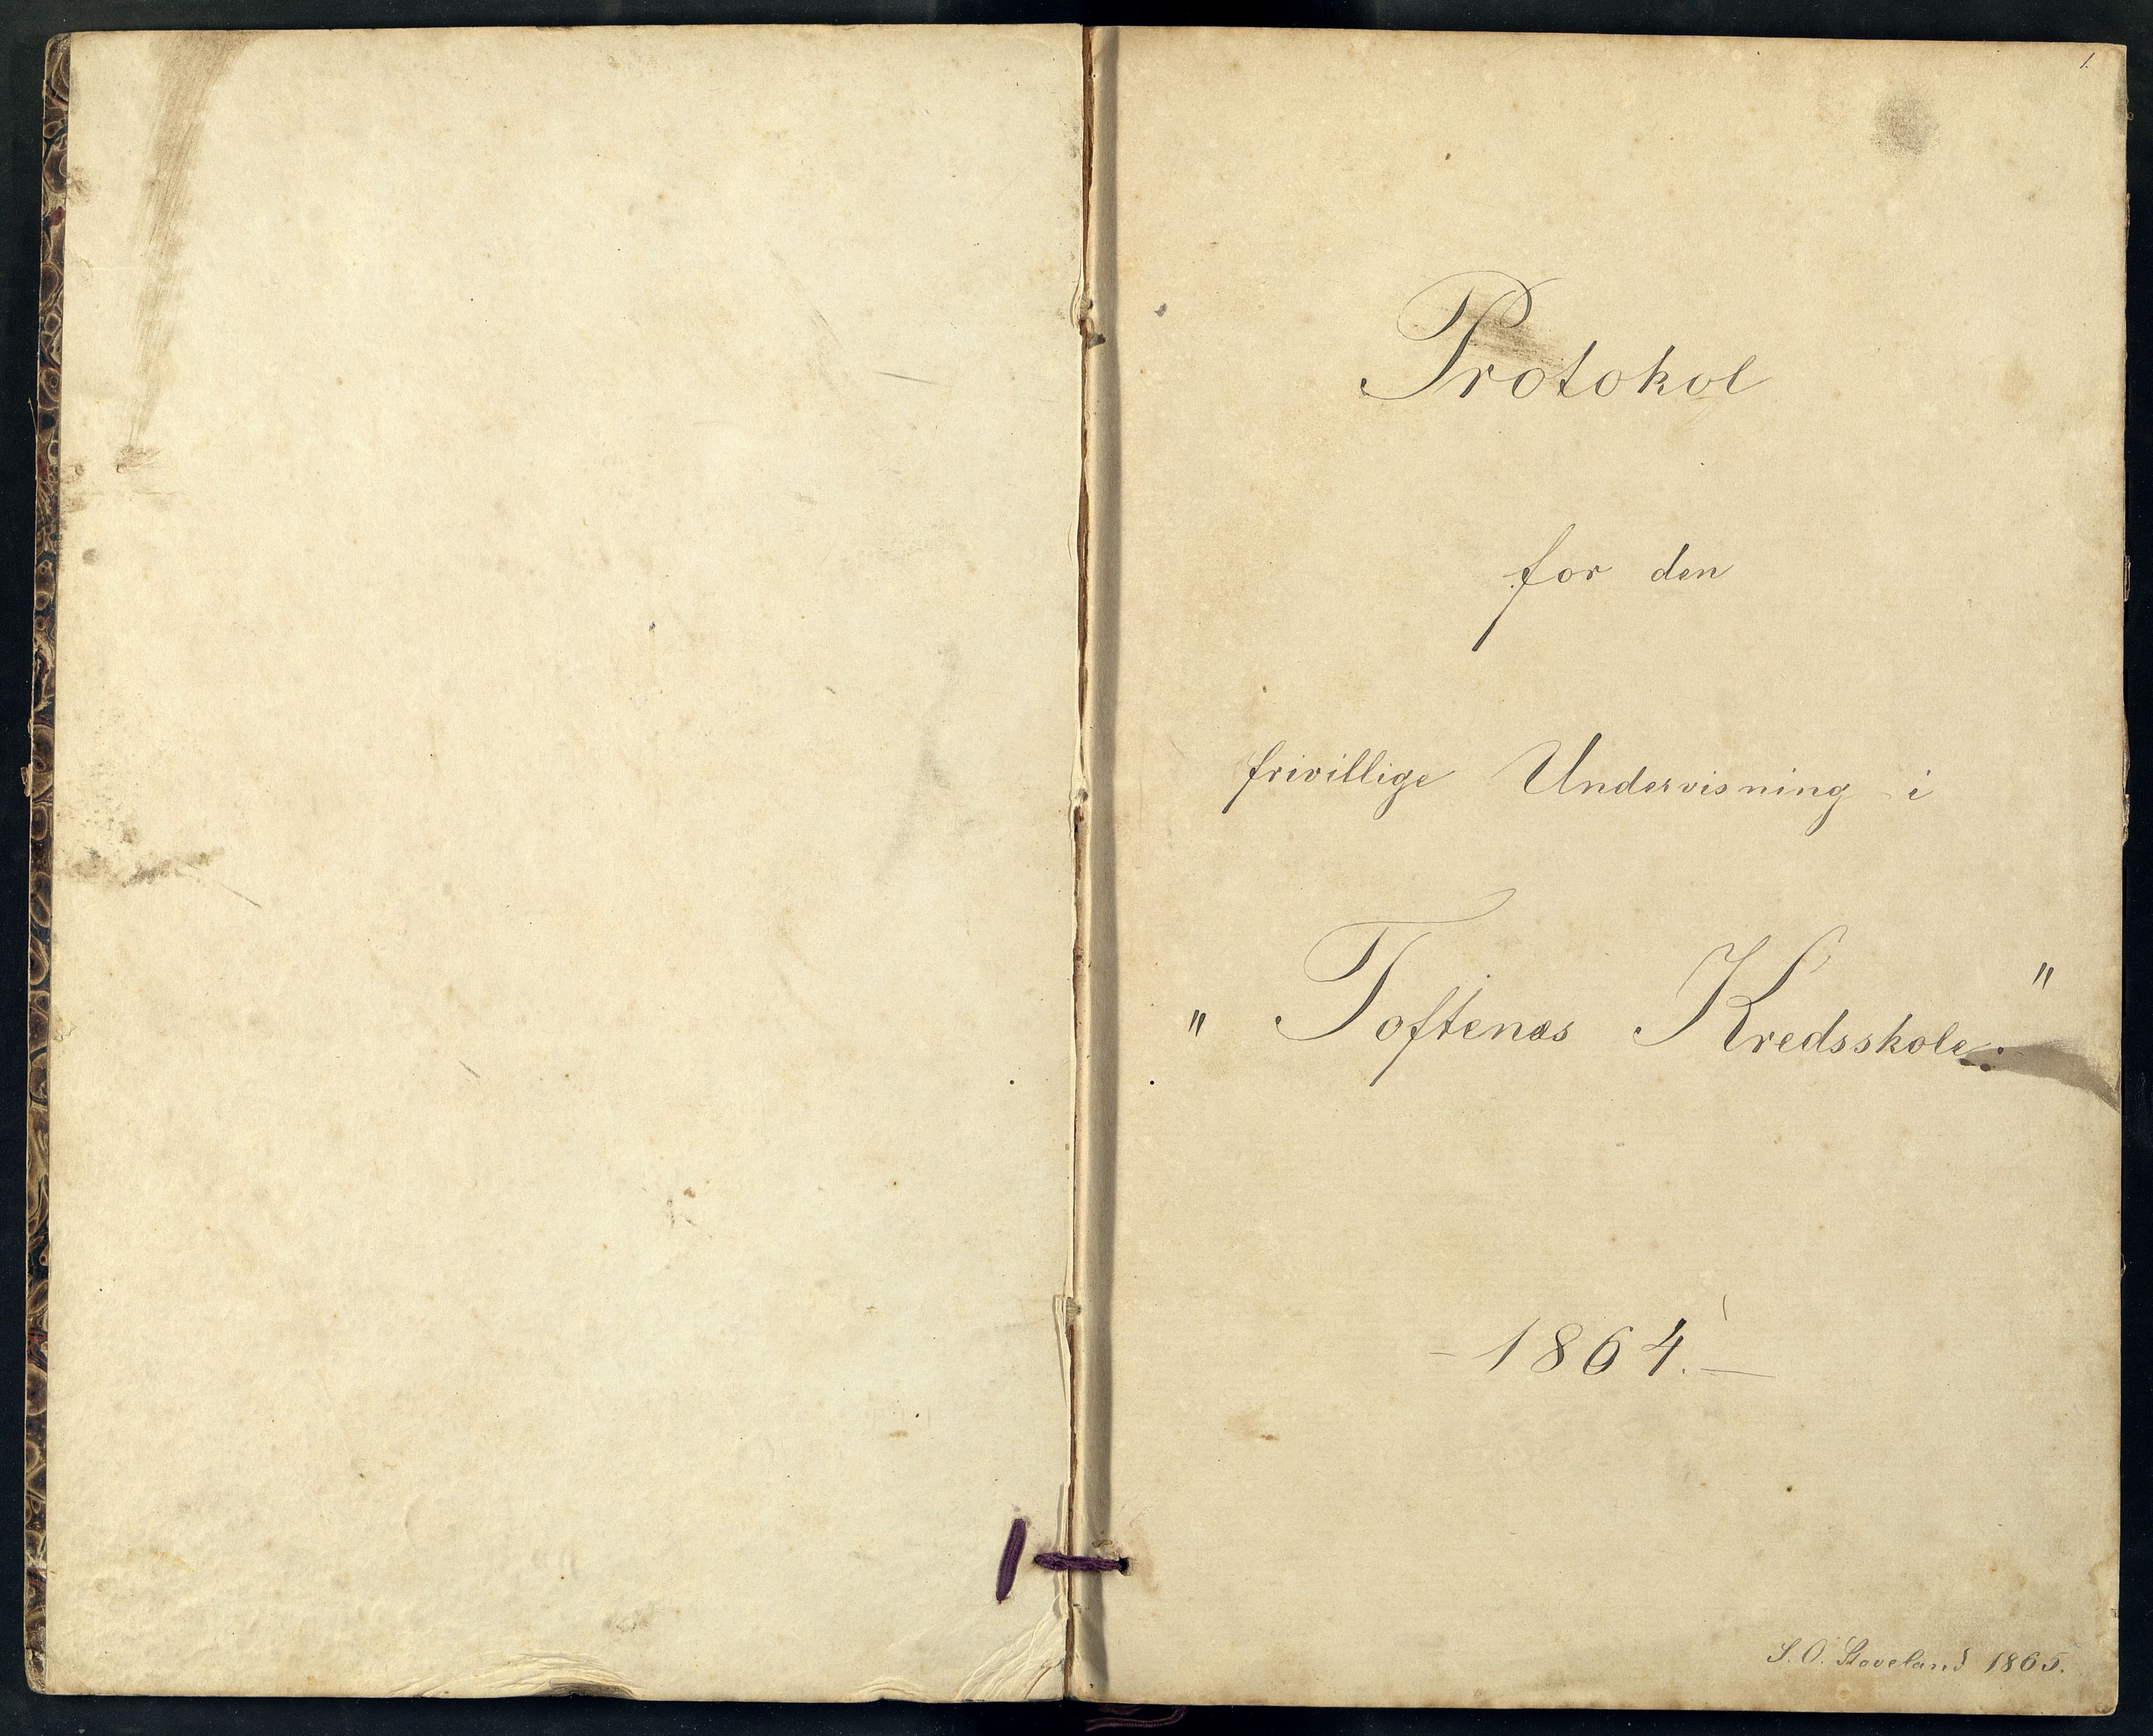 1.
Protokol
for den
frivillige Undervisning i
„ Toftenæs Kredsskole. "
- 1864. -
S. O. Stoveland 1865.